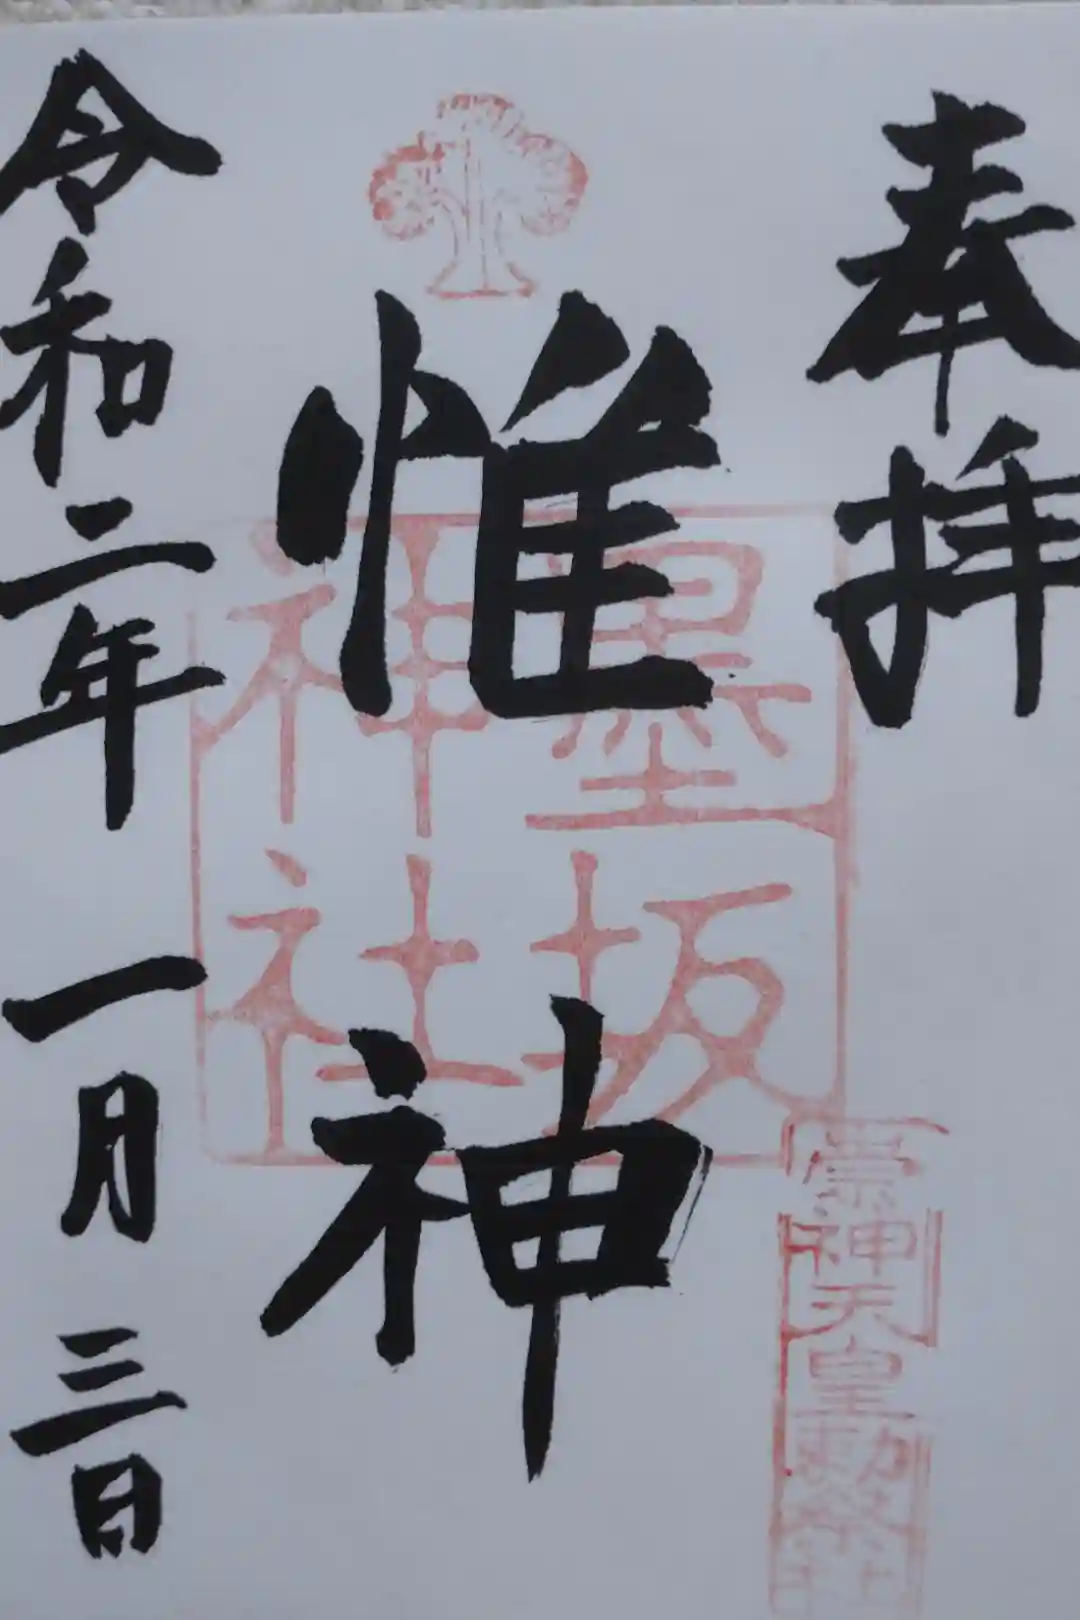 奉拝
惟神
墨坂
神社
崇神天皇勅祭社
令和二年一月三日